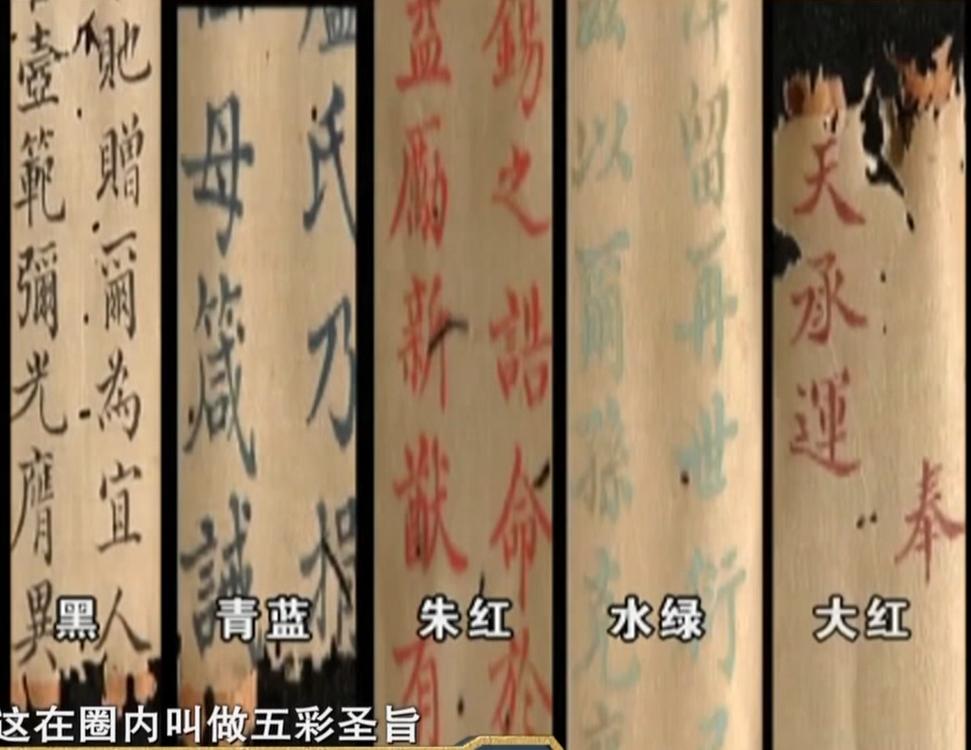 貤贈爾為宜人
壼範彌光膺異
氏乃
母箴誡
錫之誥命於
益勵新猷有
留再世衍
以爾孫克
奉
天承運
黑
青蓝
朱红
水绿
大红
这在圈内叫做五彩圣旨